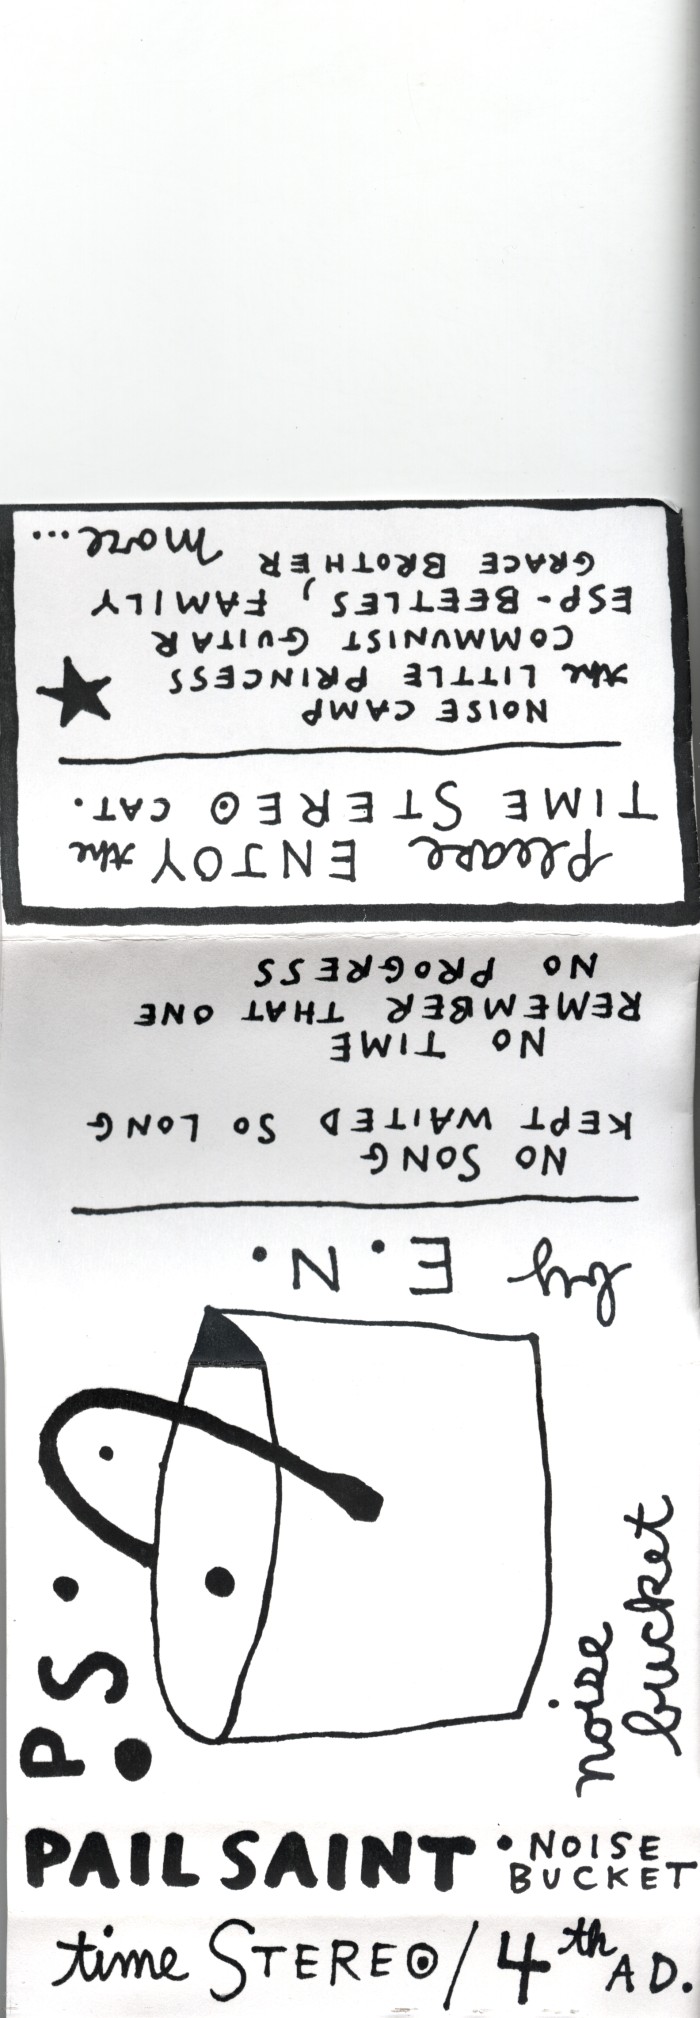 Please ENJOY the
TIME STEREO CAT.
NOISE CAMP
the LITTLE PRINCESS
COMMUNIST GUITAR
ESP-BEETLES, FAMILY
GRACE BROTHER
more...
by E.N.
NO SONG
KEPT WAITED SO LONG
NO TIME
REMEMBER THAT ONE
NO PROGRESS
P.S.
noise
bucket
PAIL SAINT • NOISE
BUCKET
time STEREO/4th AD.